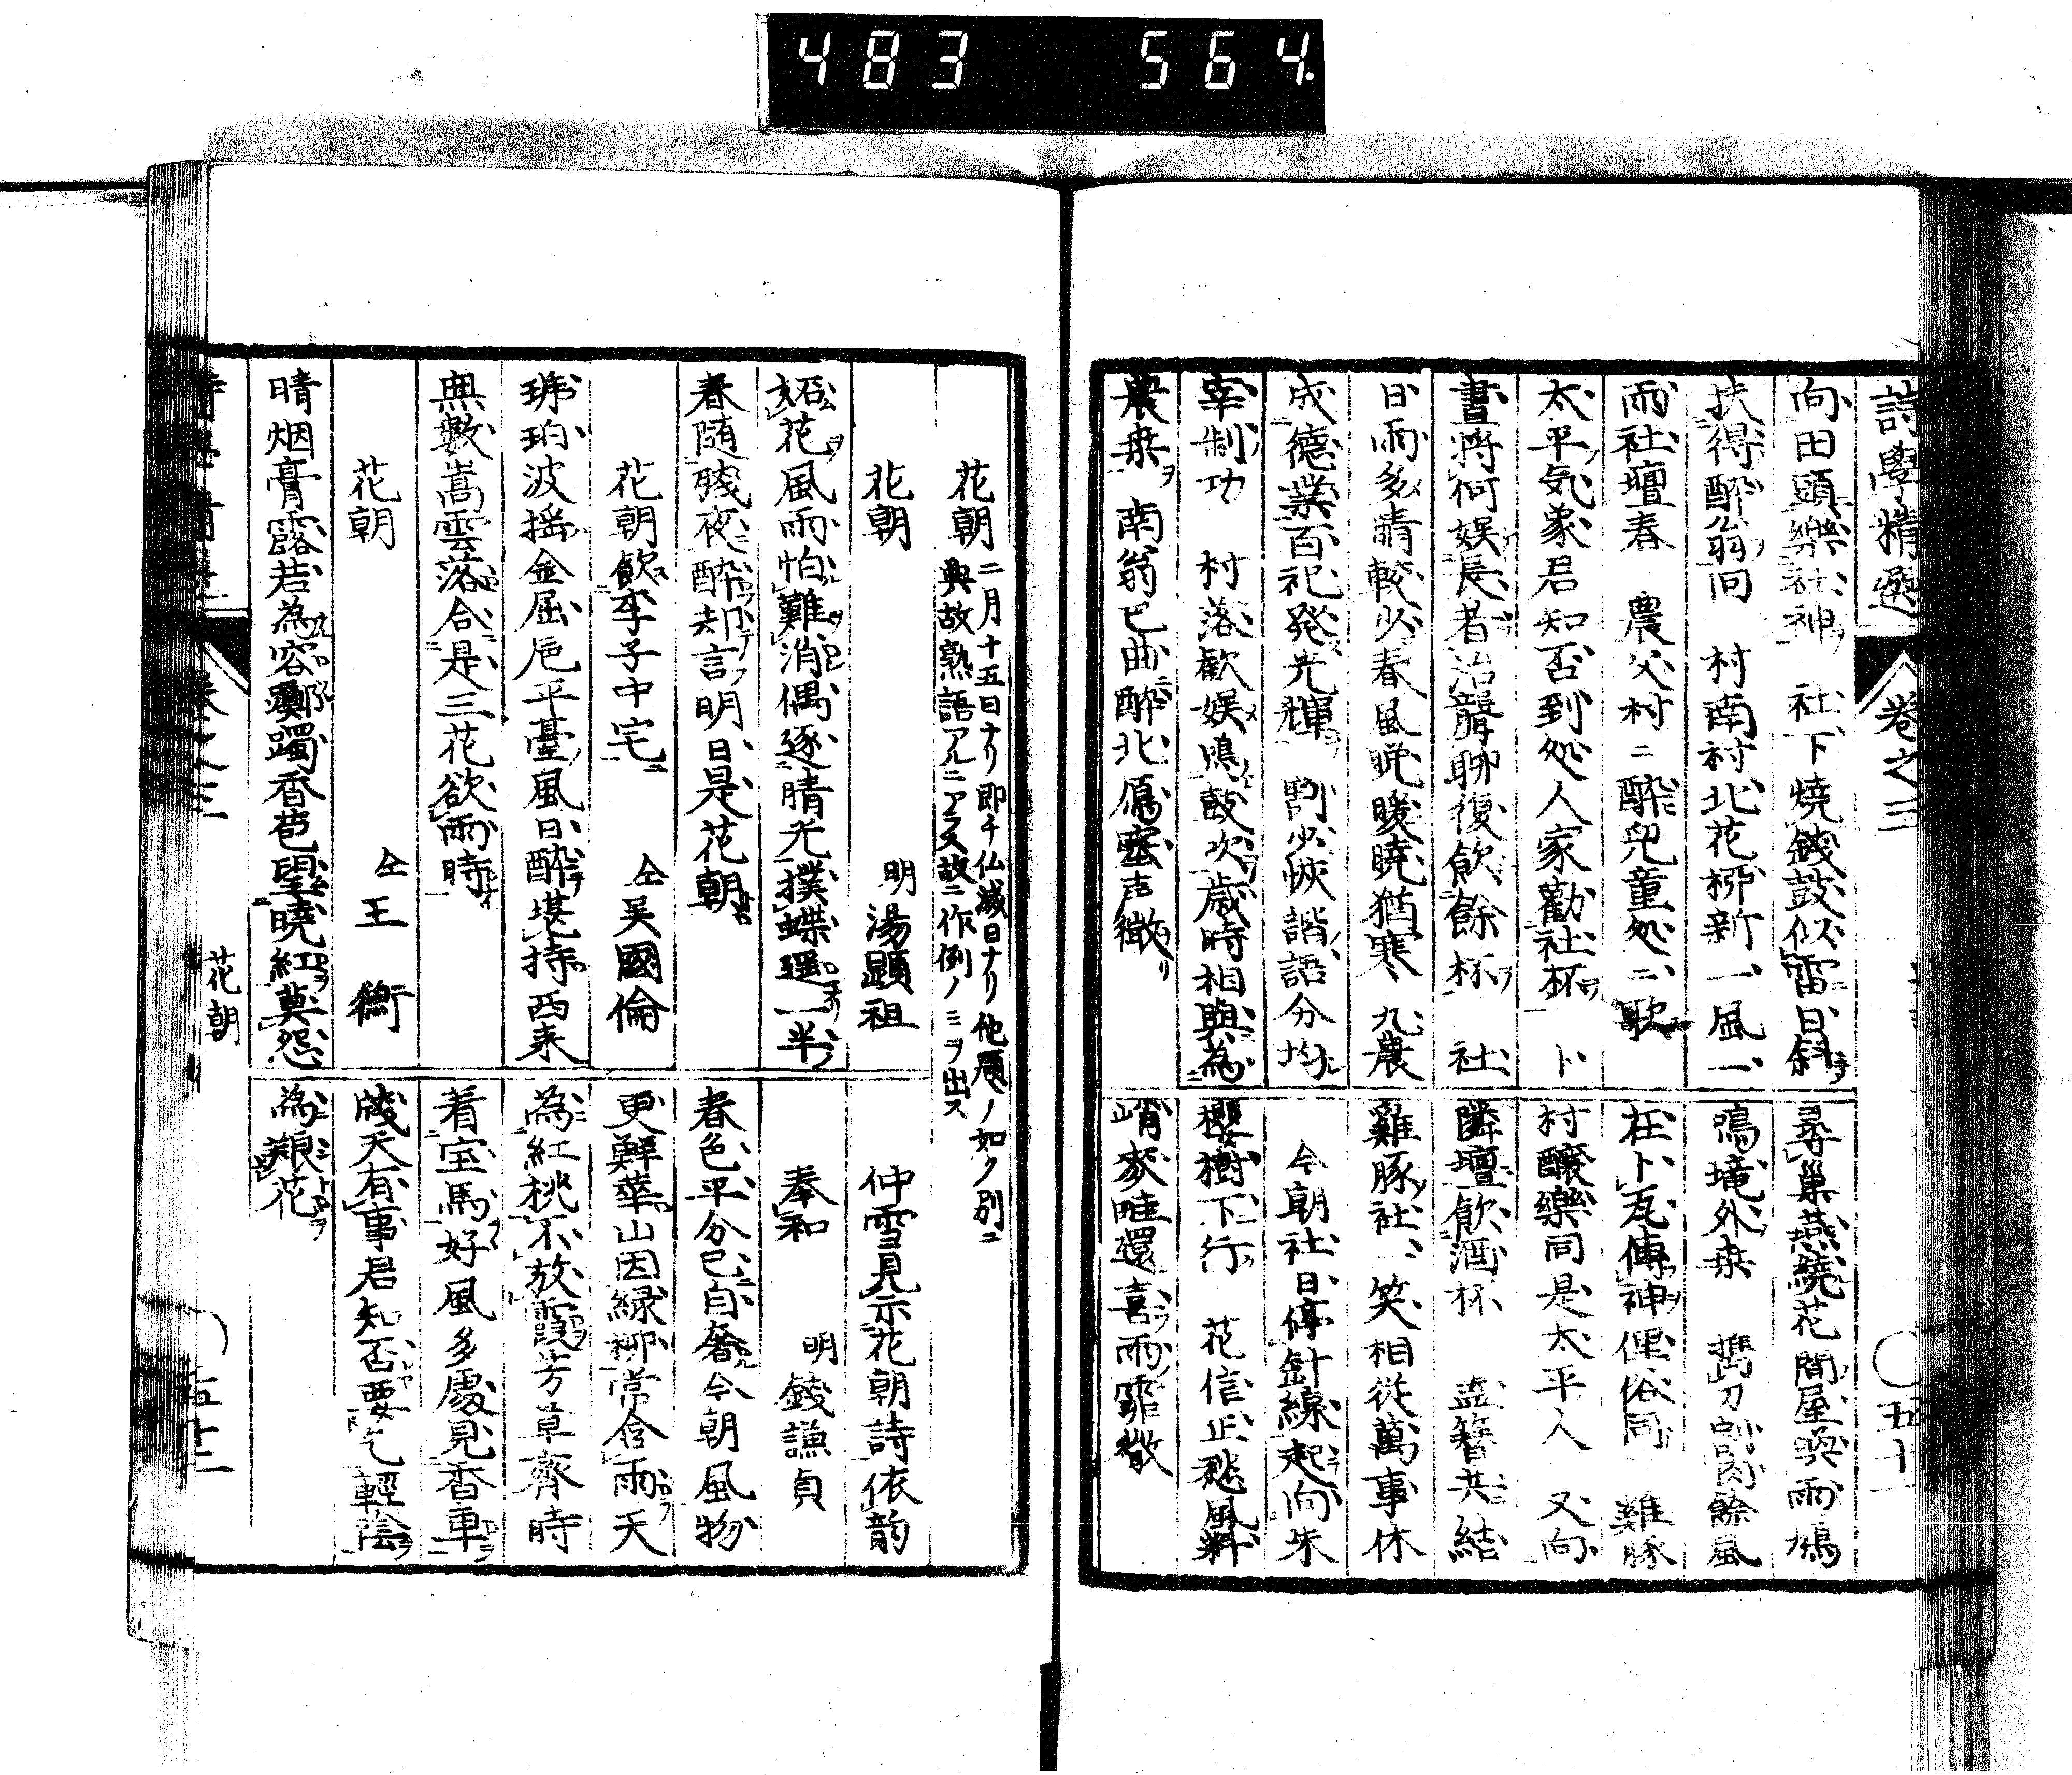 483 564.
詩學精選 卷之三 五十
向田頭樂社神 社下燒錢鼓似雷日斜
扶得醉翁回 村南村北花柳新一風一
雨社壇春 農父村ニ醉兒童処ニ歌
太平気象君知否到処人家勸社杯 卜
晝將何娯長者治聾聊復飲餘杯 社
日雨多晴較少春風晩暖曉猶寒 九農
成德業百祀発光輝 割少恢諧語分均
宰制功 村落歡娯鳴鼓吹歳時相與為
農桒 南翁已曲醉北鴈塞声微
尋巢燕繞花間屋喚雨鳩
鳴境外桒 携刀割肉餘風
在卜瓦傳神俚俗同 雞豚
村釀樂同是太平人 又向
隣壇飲酒杯 盍簪共結
雞豚社一笑相従萬事休
今朝社日停針線起向朱
櫻樹下行 花信正愁風料
峭麥畦還喜雨霏微
花朝 二月十五日ナリ即チ仏滅日ナリ他題ノ如ク別ニ
典故熟語アルニアラス故ニ作例ノミヲ出ス
花朝 明 湯顕祖
妬花風雨怕難消偶逐晴光撲蝶遥一半
春随殘夜醉却言明日是花朝
花朝飲李子中宅 仝 吴國倫
琥珀波揺金屈巵平臺風日醉堪持西来
無數嵩雲落合是三花欲雨時
花朝 仝 王衡
晴烟膏露若為容躑躅香苞望曉紅莫怨
仲雪見示花朝詩依韵
奉和 明 錢謙貞
春色平分已自奢今朝風物
更鮮華山因緑柳常含雨天
為紅桃不放霞芳草齊時
着宝馬好風多處見香車
殘天有事君知否要乞輕陰
為粮花
卷之三 花朝 五十二